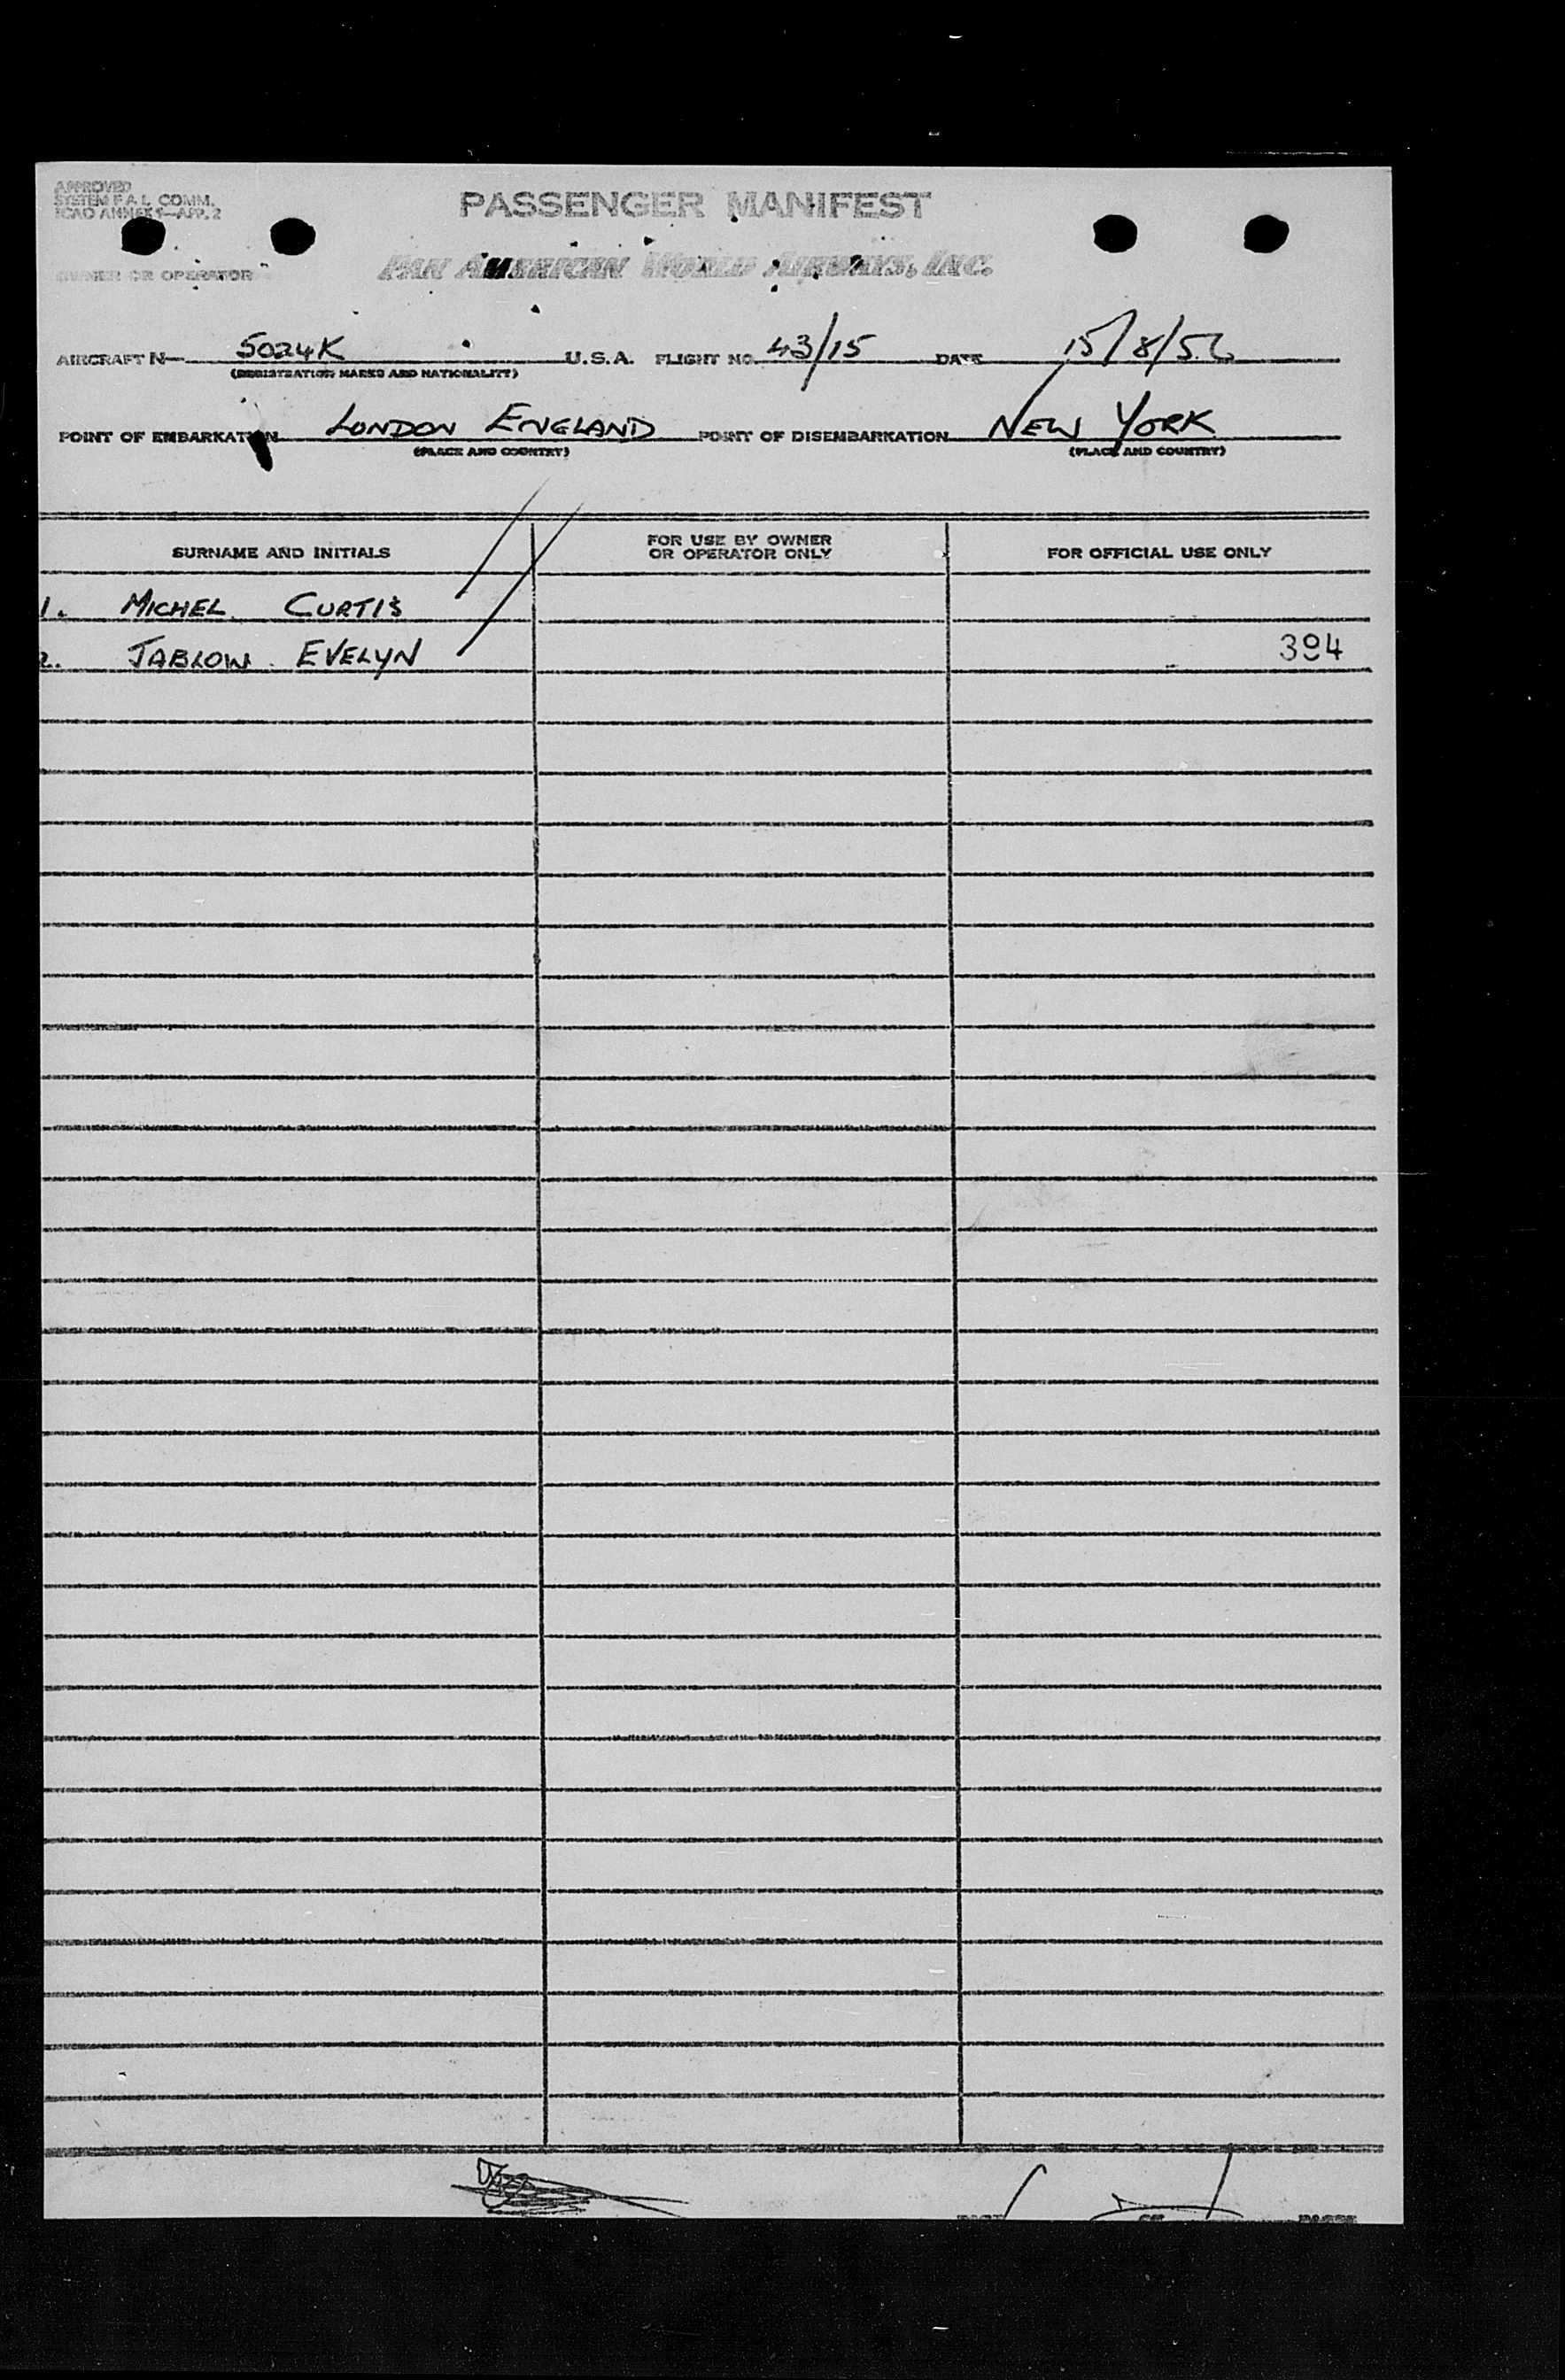 APPROVED
SYSTEM F.A.L. COMM.
ICAO ANNEX 9—APP. 2
PASSENGER MANIFEST
OWNER OR OPERATOR
PAN AMERICAN WORLD AIRWAYS, INC.
AIRCRAFT N— 5024K U.S.A. FLIGHT NO. 43/15 DATE 15/8/56
(REGISTRATION MARKS AND NATIONALITY)
POINT OF EMBARKATION LONDON ENGLAND POINT OF DISEMBARKATION NEW YORK
(PLACE AND COUNTRY) (PLACE AND COUNTRY)
SURNAME AND INITIALS FOR USE BY OWNER OR OPERATOR ONLY FOR OFFICIAL USE ONLY
1. MICHEL CURTIS
2. JABLOW EVELYN 394